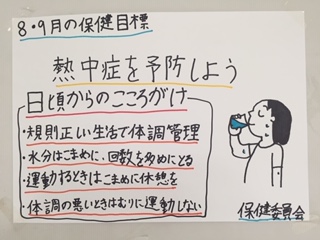 8・9月の保健目標
熱中症を予防しよう
日頃からのこころがけ
・規則正しい生活で体調管理
・水分はこまめに、回数を多めにとる
・運動するときはこまめに休憩を
・体調の悪いときはむりに運動しない
保健委員会